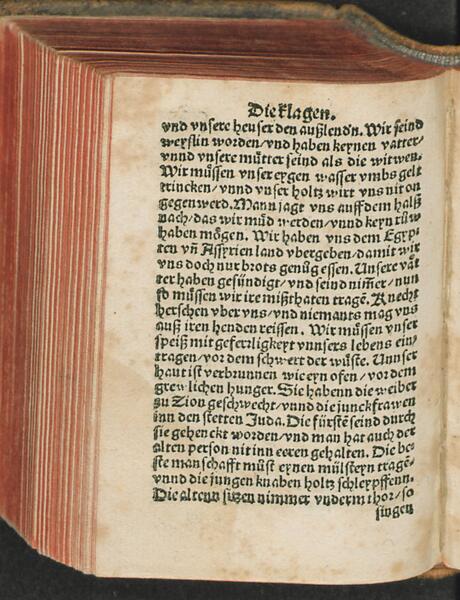 Die klagen.
vnd vnsere heuser den außlendn̄. Wir seind
weyslin worden/vnd haben keynen vatter/
vnnd vnsere mütter seind als die witwen.
Wir müssen vnser eygen wasser vmbs gelt
trincken/vnnd vnser holtz wirt vns nit on
gegenwerd. Mann jagt vns auff dem halß
nach/das wir müd werden/vnnd keyn rüw
haben mögen. Wir haben vns dem Egyp
ten vn̄ Assyrien land vbergeben/damit wir
vns doch nur brots genůg essen. Unsere vät
ter haben gesündigt/vnd seind nim̄er/nun
so müssen wir ire mißthaten tragē. Knecht
herschen vber vns/vnd niemants mag vns
auß iren henden reissen. Wir müssen vnser
speiß mit geferrligkeyt vnnsers lebens ein/
tragen/vor dem schwert der wüste. Unnser
haut ist verbrunnen wie eyn ofen/vor dem
grewlichen hunger. Sie habenn die weiber
zu Zion geschwecht/vnnd die junckfrawen
inn den stetten Juda. Die fürstē seind durch
sie gehenckt worden/vnd man hat auch der
alten person nit inn eeren gehalten. Die be/
ste manschafft müst eynen mülsteyn tragē/
vnnd die jungen knaben holtz schleypffenn.
Die altenn sitzen nimmer vnderm thor/so
singen